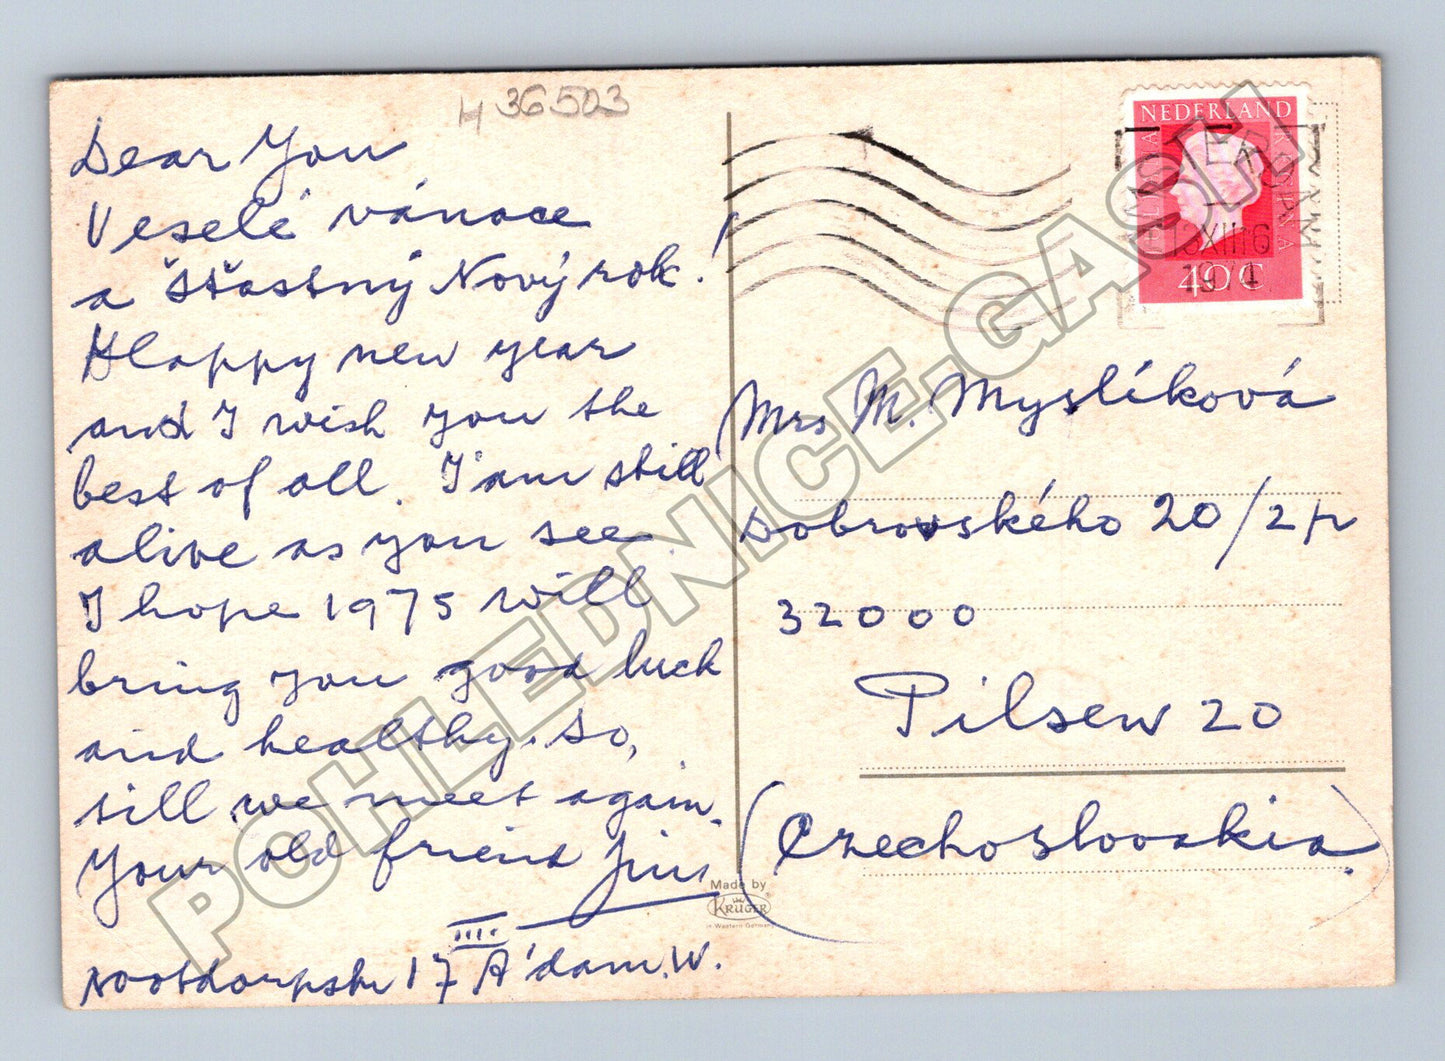 H 36503
Dear You
Veselé vánoce
a šťastný Nový rok!
Happy new year
and I wish you the
best of all. I'am still
alive as you see.
I hope 1975 will
bring you good luck
and healthy. So,
till we meet again.
Your old friend
17 A'dam. W.
NEDERLAND
40c
Mrs M. Myslíková
Dobrovského 20/2p
32000
Pilsen 20
(Czechoslovakia)
Made by
KRÜGER
in Western Germany
POHLEDNICE-GASCH